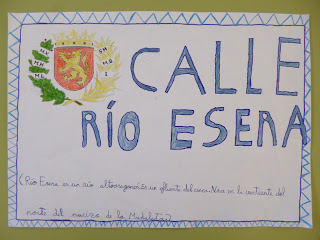 CALLE
RÍO ESERA
(Río Esera es un río altoaragonés un afluente del cinca. Nace en la vertiente del
norte del macizo de la Maladeta.)